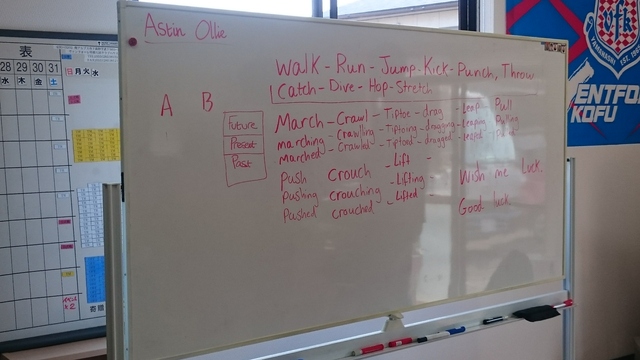 Astin Ollie
Walk - Run - Jump - Kick - Punch, Throw
Catch - Dive - Hop - Stretch
A B
Future
Present
Past
March - Crawl - Tiptoe - drag - Leap - Pull
marching - crawling - Tiptoing - dragging - Leaping Pulling
marched - crawled - Tiptoed - dragged - leaped
Push Crouch - Lift -
Pushing crouching - Lifting -
Pushed crouched - Lifted -
Wish me Luck.
Good luck.
表
28 29 30 31
水 木 金 土
日 月 火 水
VFK
VENTFORET
KOFU